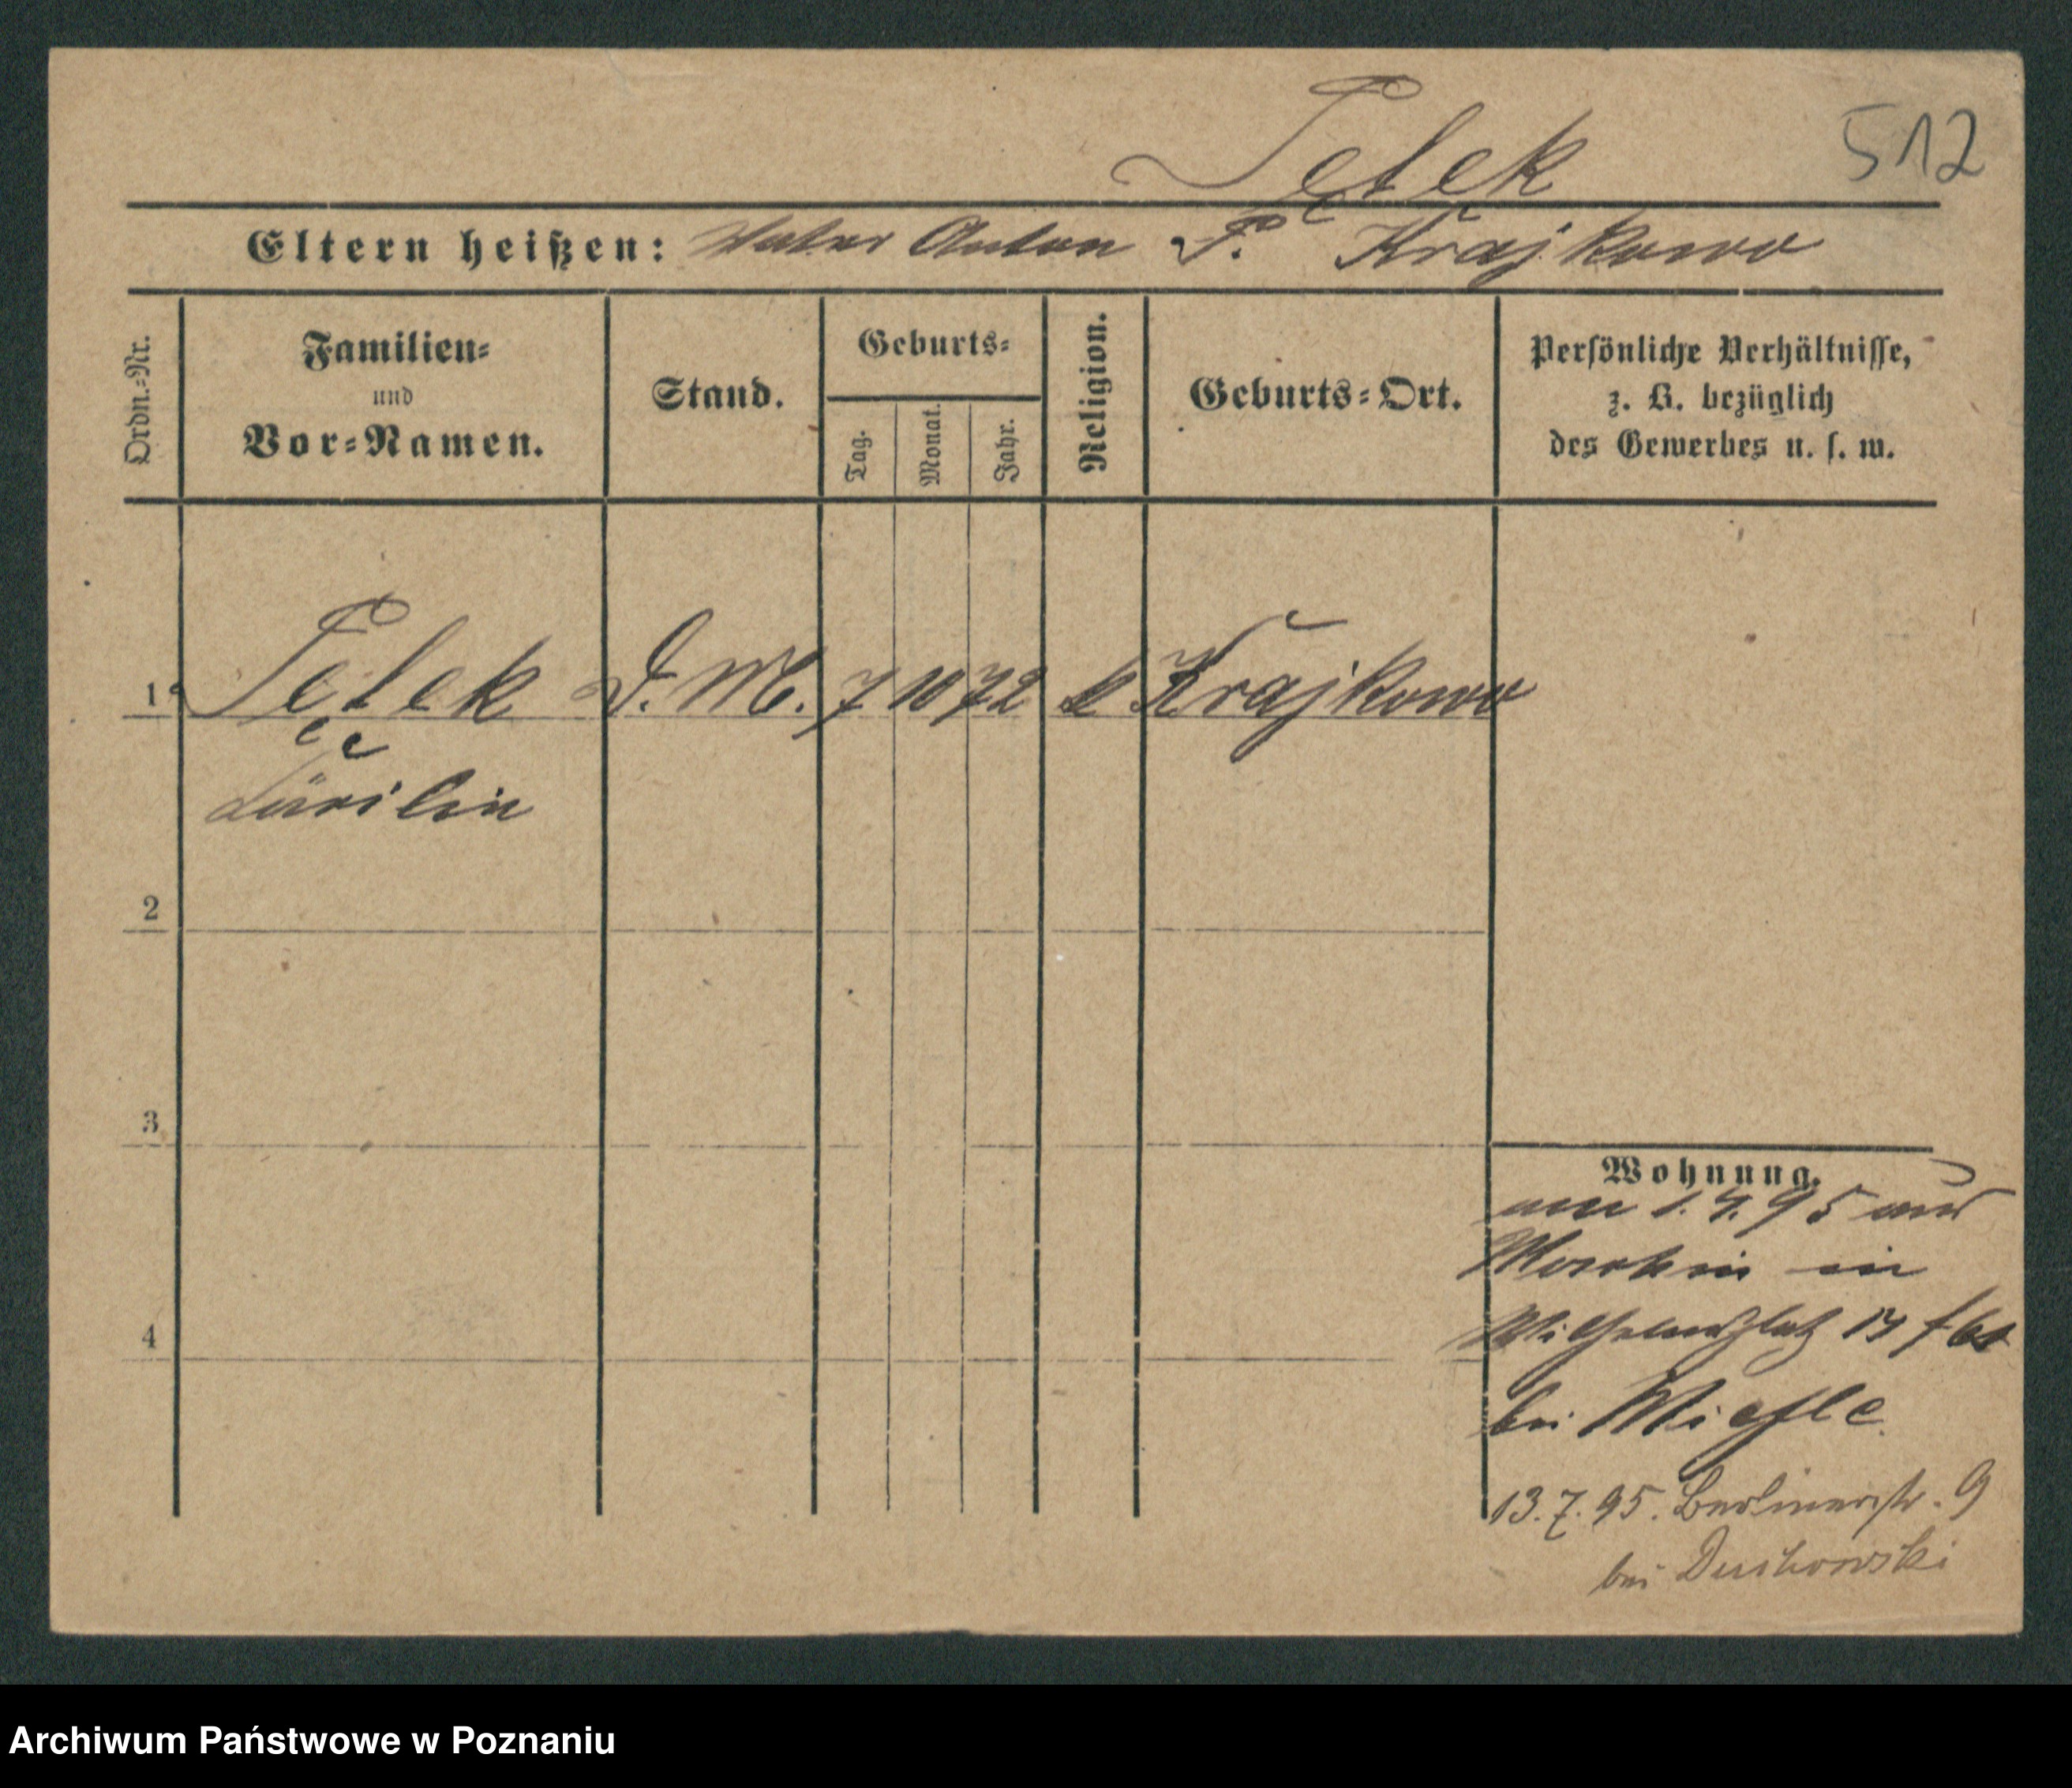 512
Pelek
Eltern heißen: Vater Anton P. Krajkowo
Ordn.-Nr.
Familien-
und
Vor-Namen.
Stand.
Geburts-
Tag.
Monat.
Jahr.
Religion.
Geburts-Ort.
Persönliche Verhältnisse,
z. B. bezüglich
des Gewerbes u. s. w.
1 D. M. 7 10 72 k Krajkowo
2
3
4
Wohnung.
1. 4. 95 aus
in
Wilhelmsplatz
bei
13. 7. 95. Berlinerstr. 9
bei
Archiwum Państwowe w Poznaniu